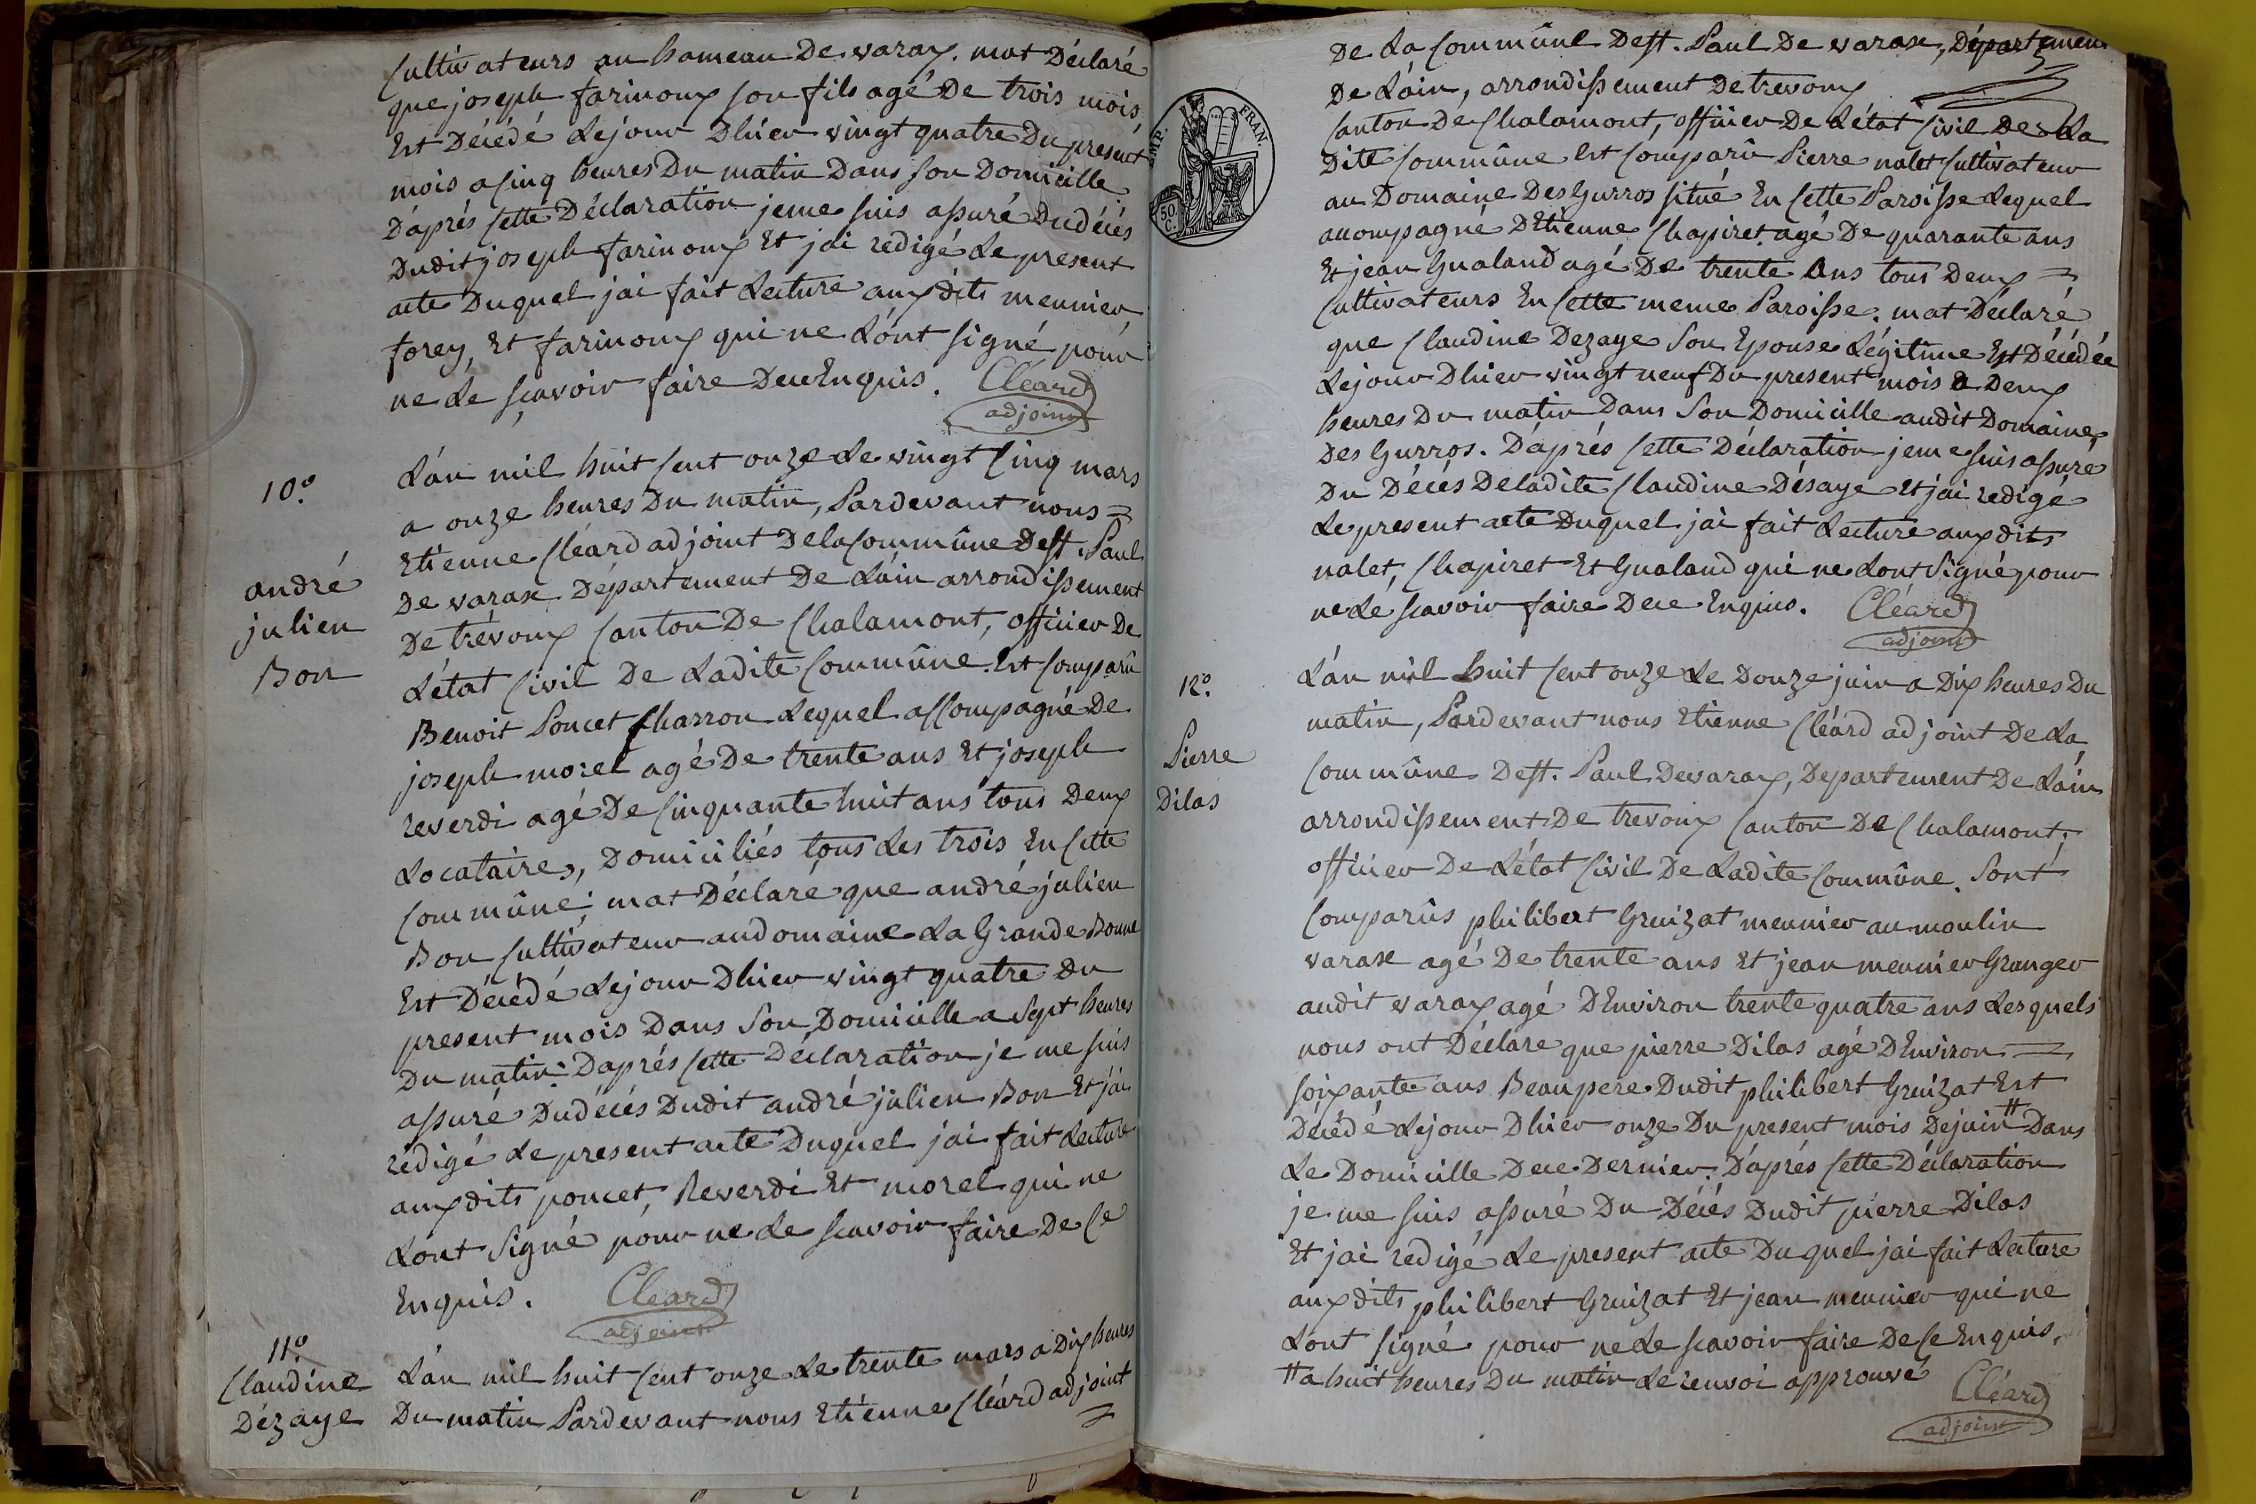 Cultivateurs au hameau De varax. mat Déclaré
que joseph farinoux son fils agé De trois mois
Est Décédé Le jour Dhier vingt quatre Du présent
mois a Cinq heures Du matin Dans son Domicille
D'aprés Cette Déclaration je me suis assuré Du décés
Dudit joseph farinoux Et jai redigé Le present
acte Duquel jai fait Lecture aux dits meunier
forey, Et farinoux qui ne L'ont signé pour
ne Le sçavoir faire De ce Enquis. Cléard
adjoint
10º.
andré
julien
Bon
L'an mil huit Cent onze Le vingt Cinq mars
a onze heures Du matin, Pardevant nous =
Etienne Cléard adjoint De la Commûne De St. Paul
De varax Département De L'ain arrondissement
De trévoux Canton De Chalamont, officier De
L'état Civil De Ladite Commûne. Est Comparû
Benoit Poncet Charron Lequel acCompagné De
joseph morel agé De trente ans Et joseph
reverdi agé De Cinquante huit ans tous Deux
Locataires, Domiciliés tous Les trois En Cette
Commûne; mat Déclaré que andré julien
Bon Cultivateur au domaine La Grande Bonne
Est Décédé Le jour Dhier vingt quatre Du
present mois Dans Son Domicille a Sept heures
Du matin. D'aprés Cette Déclaration je me suis
assuré Du décés Dudit andré julien Bon Et j'ai
rédigé Le present acte Duquel jai fait Lecture
aux dits poncet, Reverdi Et morel qui ne
L'ont Signé pour ne Le scavoir faire De Ce
Enquis. Cléard
adjoint
11º.
Claudine
Dézaye
L'an mil huit Cent onze Le trente mars a Dix heures
Du matin Pardevant nous Etienne Cléard adjoint
IMP. FRAN.
50 C.
De La Commûne De St. Paul De varax, Département
De L'ain, arrondissement De trevoux
Canton De Chalamont, officier De L'état Civil De La
Dite Commûne Est Comparû Pierre nalet Cultivateur
au Domaine Des Gurros situé En Cette Paroisse Lequel
accompagné D'Etienne Chapiret agé De quarante ans
Et jean Gualand agé De trente ans tous Deux =
Cultivateurs En Cette meme Paroisse; mat Déclaré
que Claudine Dezaye Son Epouse Légitime Est Décédée
Le jour Dhier vingt neuf Du present mois a Deux
heures Du matin Dans Son Domicille audit Domaine
Des Gurros. D'aprés Cette Déclaration je me suis assuré
Du Décés De ladite Claudine Désaye Et jai redigé
Le present acte Duquel jai fait Lecture aux dits
nalet, Chapiret Et Gualand qui ne Lont Signé pour
ne Le scavoir faire De ce Enquis. Cléard
adjoint
12º.
Pierre
Dilas
L'an mil huit Cent onze Le Douze juin a Dix heures Du
matin, Pardevant nous Etienne Cléard adjoint De La
Commûne De St. Paul De varax, Departement De L'ain
arrondissement De trevoux Canton De Chalamont;
officier De L'état Civil De Ladite Commûne. Sont
Comparûs philibert Gruizat meunier au moulin
varax agé De trente ans Et jean meunier Granger
audit varax agé D'Environ trente quatre ans Lesquels
nous ont Déclare que pierre Dilas agé D'Environ =
soixante ans Beaupere Dudit philibert Gruizat Est
Décédé Le jour Dhier onze Du present mois De juin # Dans
Le Domicille De ce Dernier. D'aprés Cette Déclaration
je me suis assuré Du Décés Dudit pierre Dilas
Et jai redigé Le present acte Du quel jai fait Lecture
aux dits philibert Gruizat Et jean meunier qui ne
L'ont signé pour ne Le scavoir faire De Ce Enquis.
# a huit heures Du matin Le renvoi approuvé Cléard
adjoint